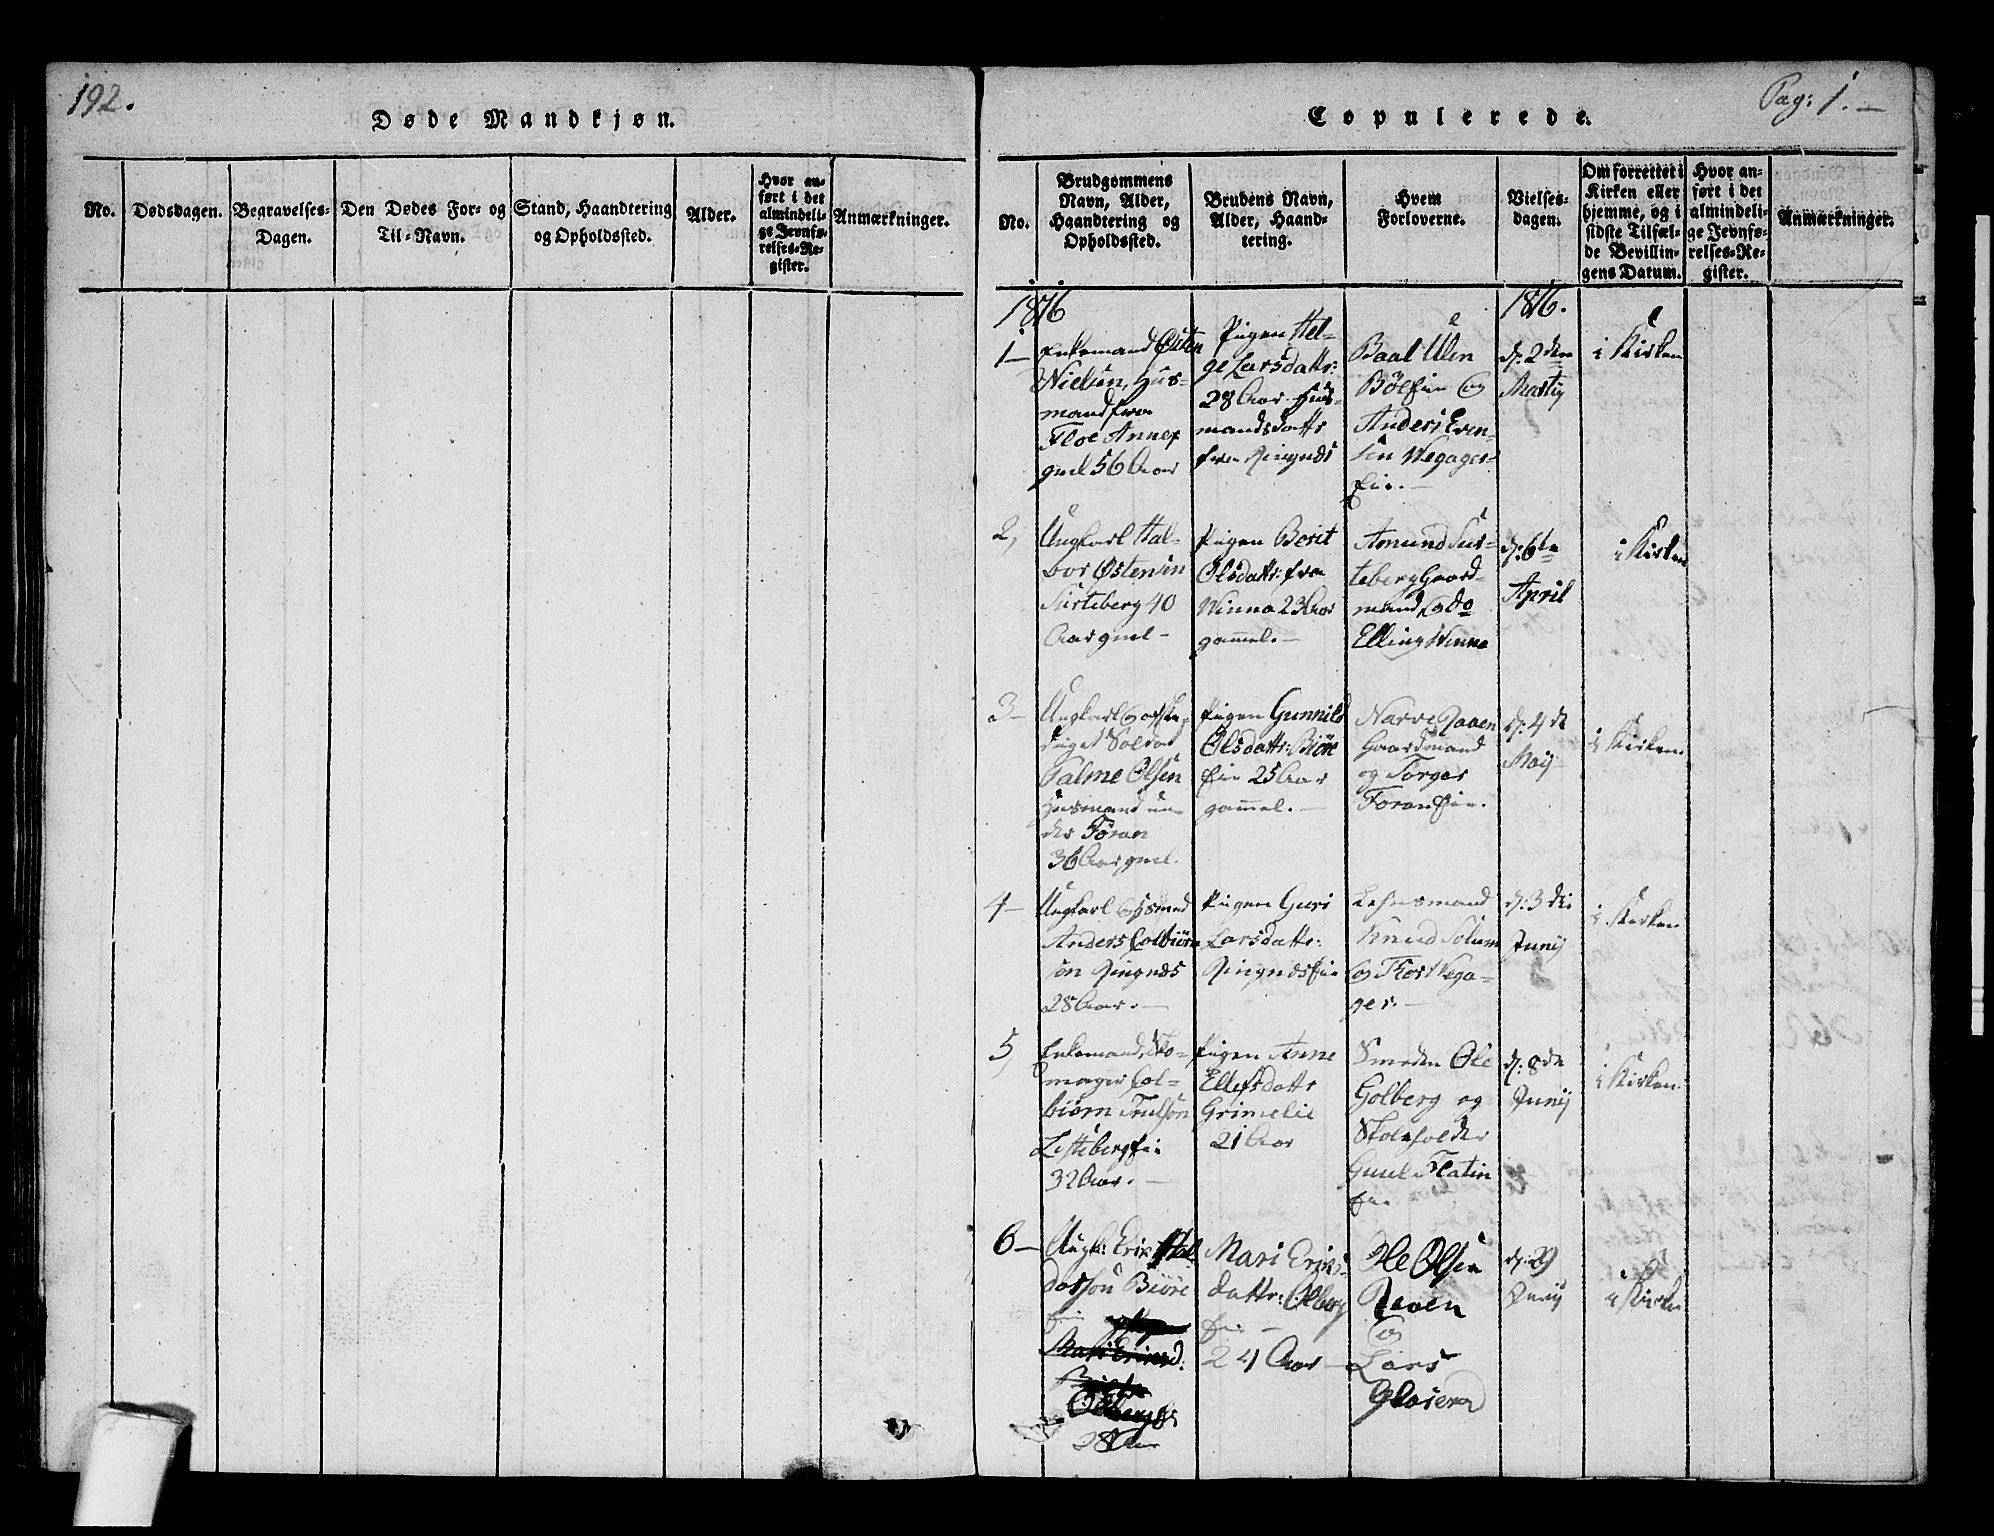 192.
Døde Mandkjøn.
No.
Dødsdagen.
Begravelses-
Dagen.
Den Dødes For- og
Til-Navn.
Stand, Haandtering
og Opholdssted.
Alder.
Hvor an-
ført i det
almindeli-
ge Jevnfø-
relses-Re-
gister.
Anmærkninger.
Pag: 1.
Copulerede.
No.
Brudgommens
Navn, Alder,
Haandtering og
Opholdssted.
Brudens Navn,
Alder, Haand-
tering.
Hvem
Forloverne.
Vielses-
dagen.
Om forrettet i
Kirken eller
hjemme, og i
sidste Tilfæl-
de Bevillin-
gens Datum.
Hvor an-
ført i det
almindeli-
ge Jevnfø-
relses-Re-
gister.
Anmærkninger.
1816
1816.
1-
Enkemand Østen
Nielsen, Hus-
mand fra
Floe Annex
gml 56 Aar
Pigen Hel-
ge Larsdattr:
28 Aar Hus-
mandsdattr
fra Ringnes
Baal Ulen
Bölfin og
Anders Even-
sen Wegager-
eie.-
d: 2den
Martij
i Kirken
2,
Ungkarl Hal-
vor Østensen
Surteberg 40
Aar gml-
Pigen Berit
Olsdattr: fra
Winna 23 Aar
gammel.-
Amund Sur-
teberg Gaard-
mand, og do
Elling Winna
d: 6te
April
i Kirken
3-
Ungkarl og afske-
diget Soldat
Palme Olsen
Husmand un-
der Føran
36 Aar gml.
Pigen Gunnild
Olsdattr: Biøre
eie 25 Aar
gammel.-
Narve Raaen
Gaardmand
og Torger
Foran eie.
d: 4de
Maij
i Kirken
4-
Ungkarl og Husmand
Anders Colbiørn
sen Ringnes
28 Aar.-
Pigen Guri
Larsdattr:
Ringnes eie
Lehnsmand
Knud Solum
og Thor Vega-
ger.-
d: 3die
Junij
i Kirken
5,
Enkemand, Sko-
mager Col-
biørn Trulson
Lisseberg eie
32 Aar.-
Pigen Anne
Ellefsdattr
Grimelie
21 Aar
Smeden Ole
Golberg og
Skoleholder
Guul Flatin
eie
d: 8de
Junij
i Kirken
6-
Ungk: Erik Hal
dorson Biøre
eie
28 Aar
Mari Eriks-
dattr: Olberg
eie-
24 Aar-
Ole Olsen
Raaen
og
Lars
Glaserud
d: 29
Junij
i Kirken